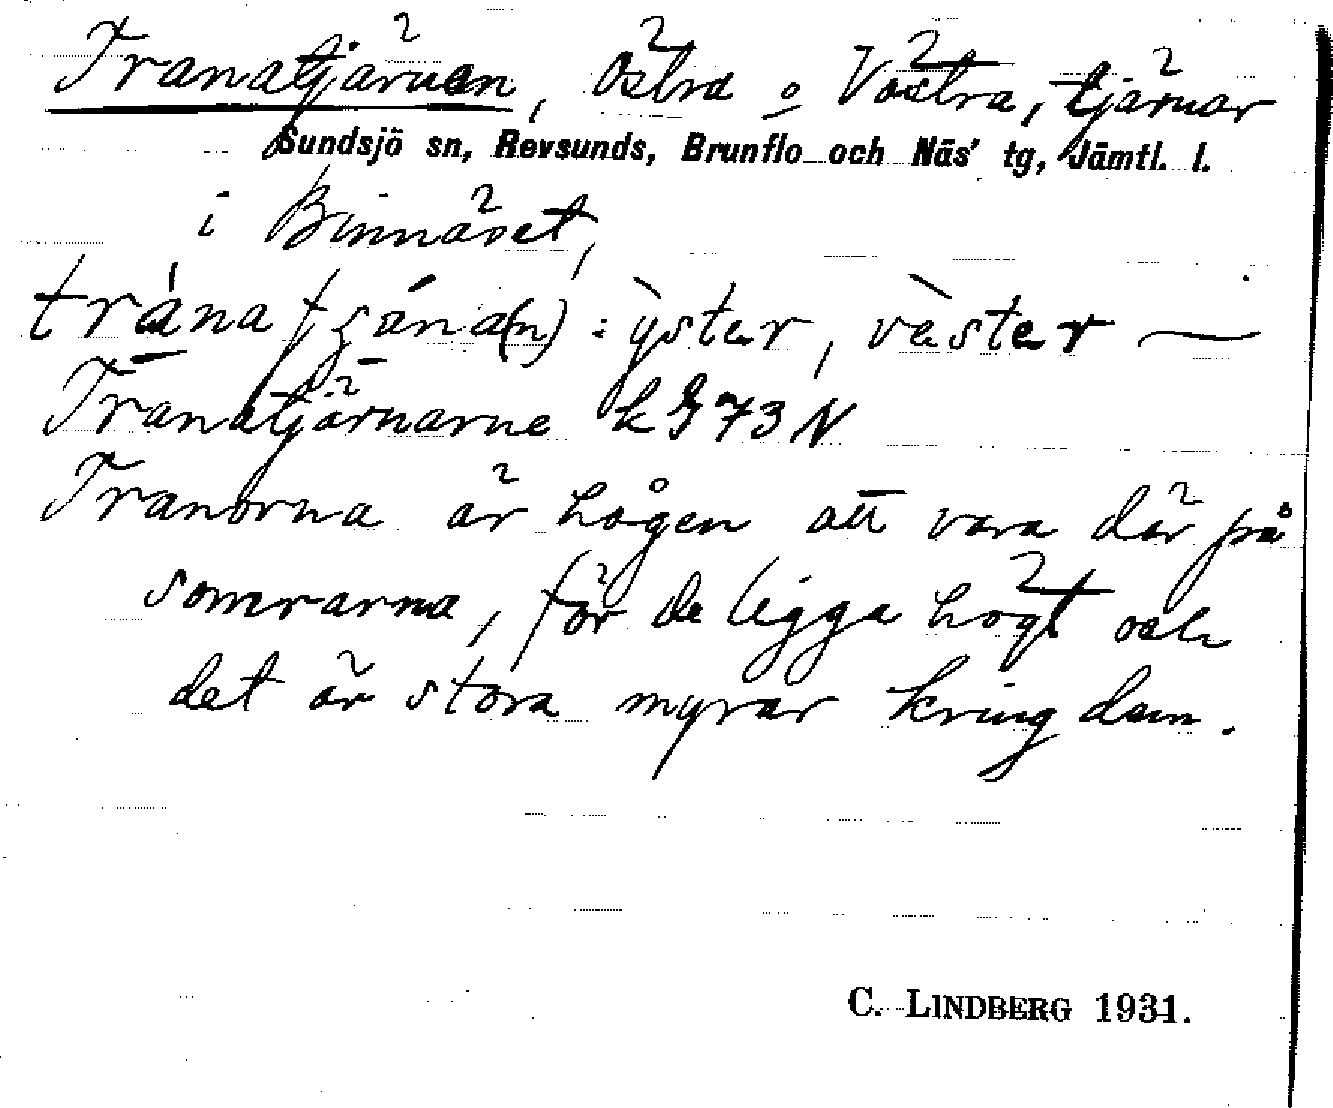 Tranatjärnen, Östra o Västra, tjärnar
Sundsjö sn, Revsunds, Brunflo och Näs' tg, Jämtl. l.
i Binnäset,
trána tjäna(n): ỳster, vèster —
Tranatjärnarne k G 73 N
Tranorna är högen att vara där på
somrarna, för de ligga högt och
det är stora myrar kring dem.
C. LINDBERG 1931.